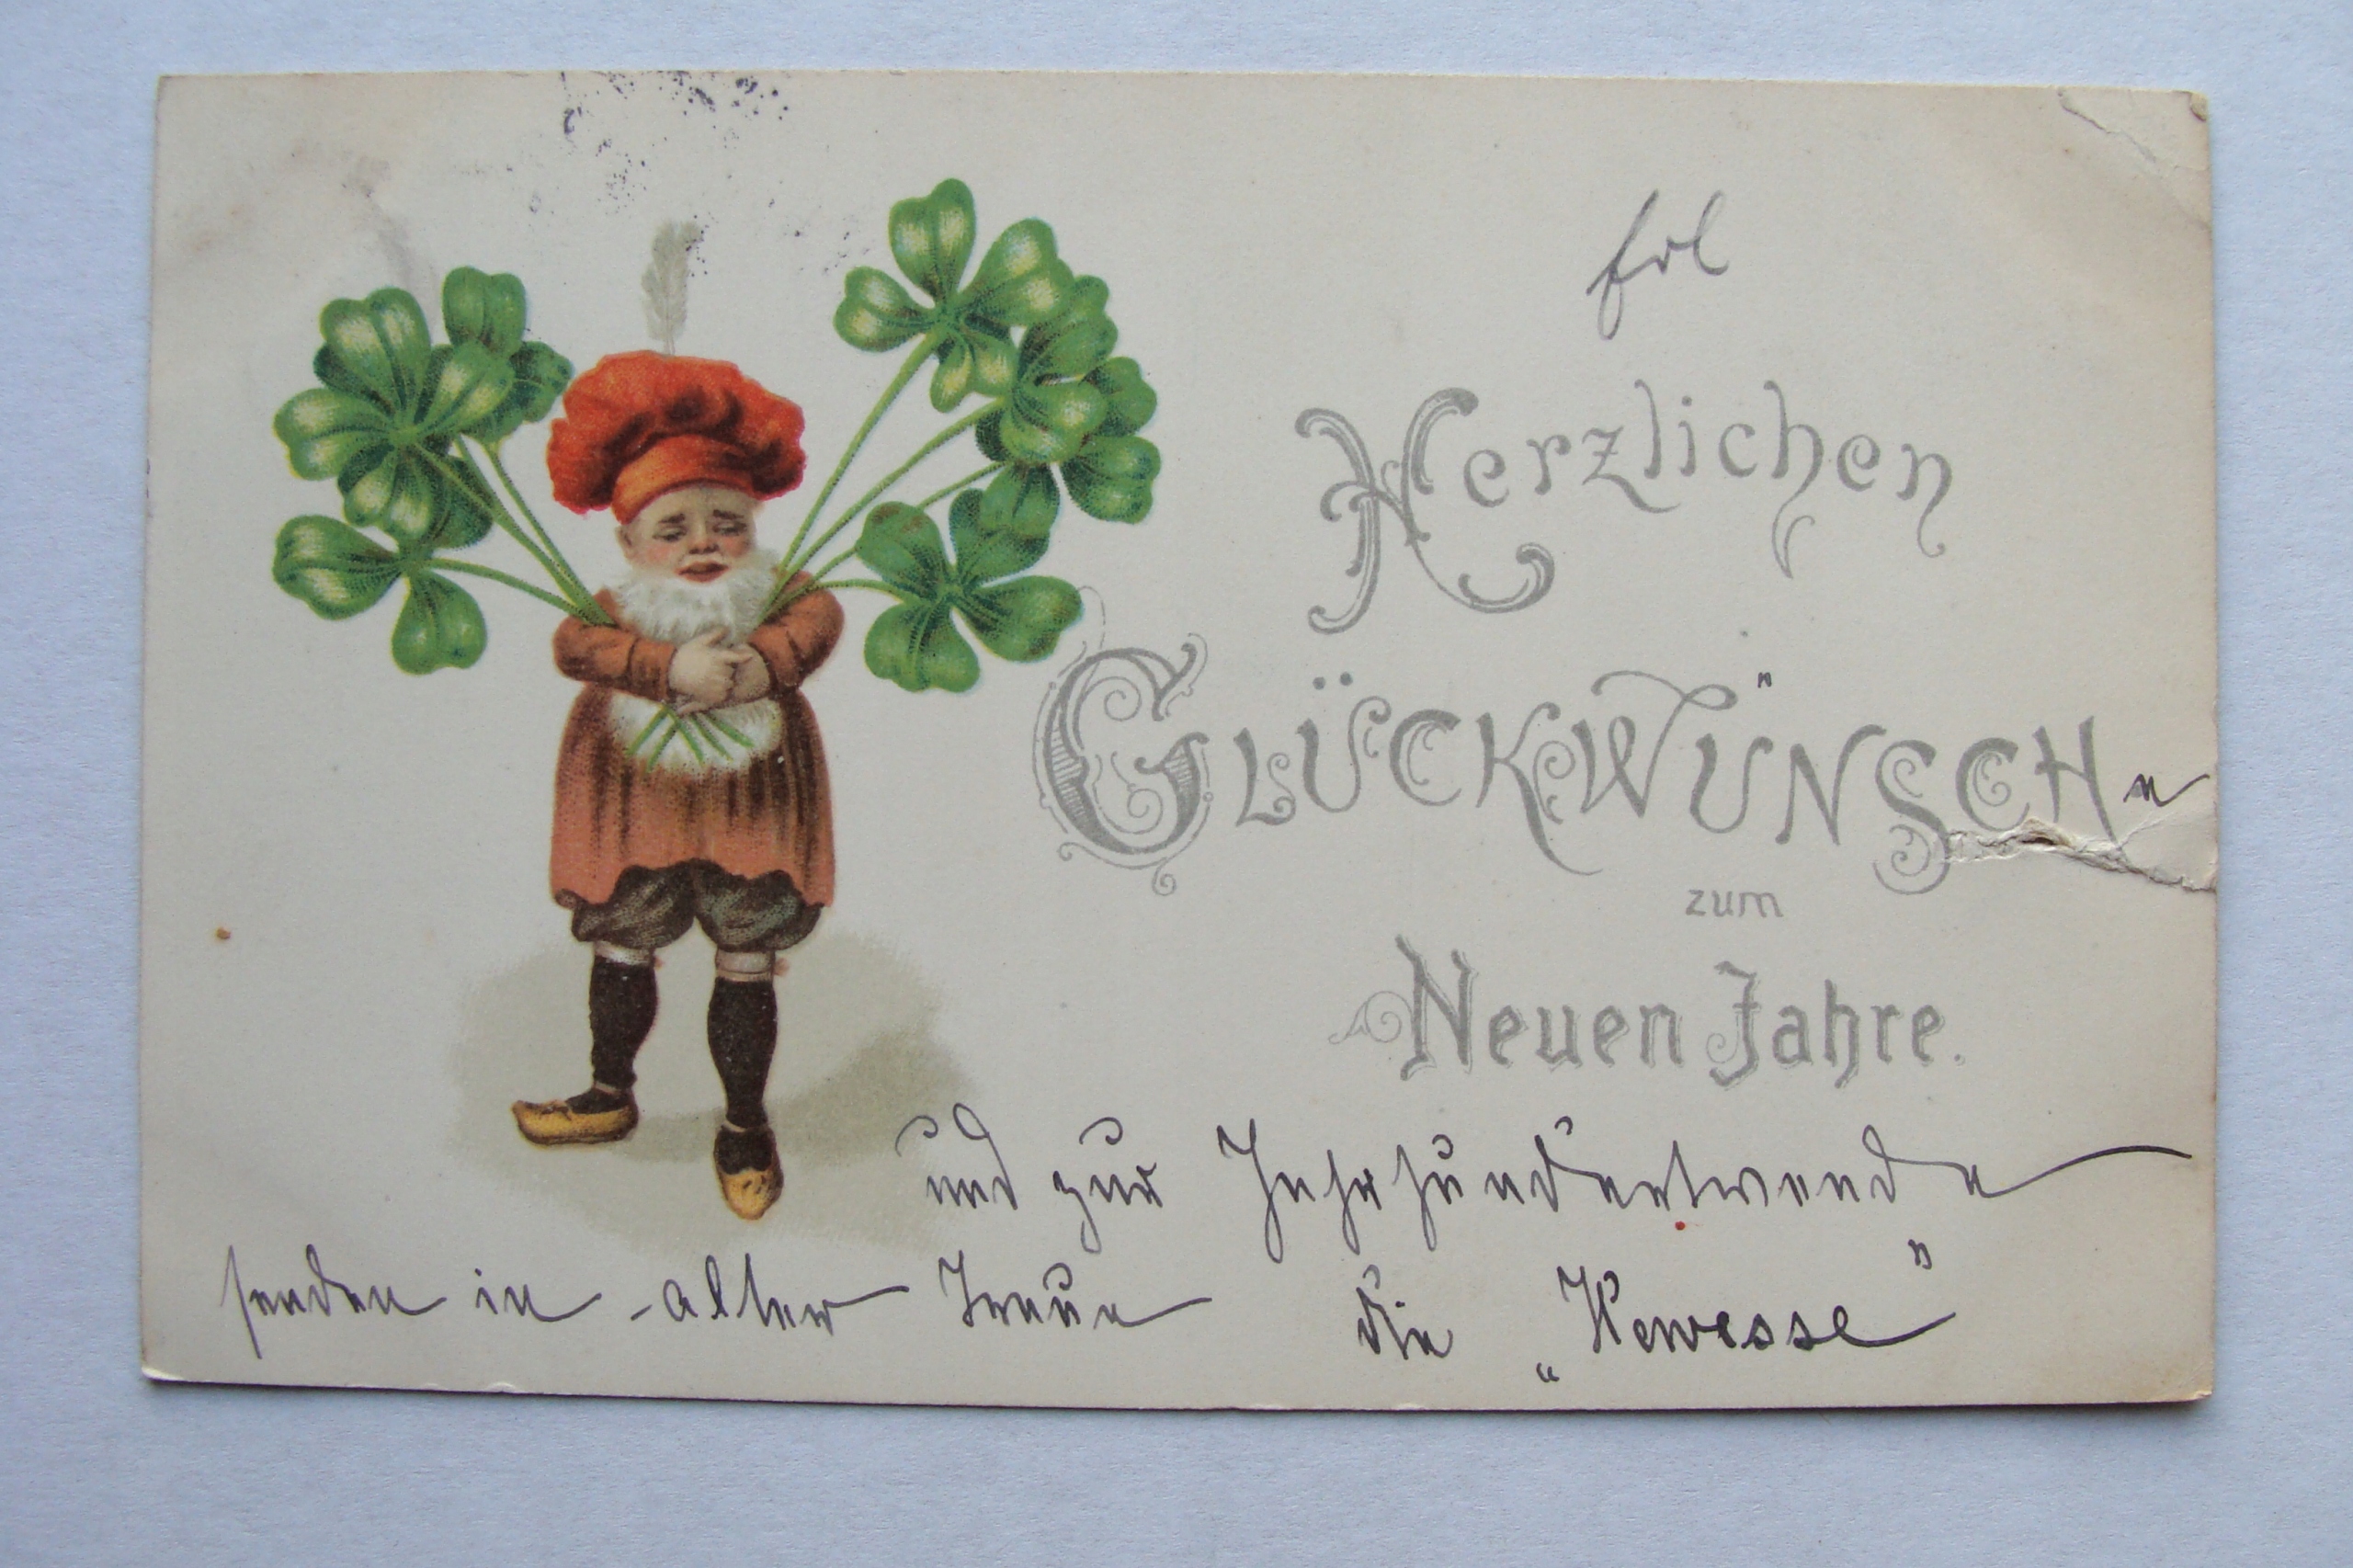 Herzlichen
GLÜCKWÜNSCHe
zum
Neuen Jahre.
und zur Jahrhundertwende
senden in alter Treue die „Kewesse"